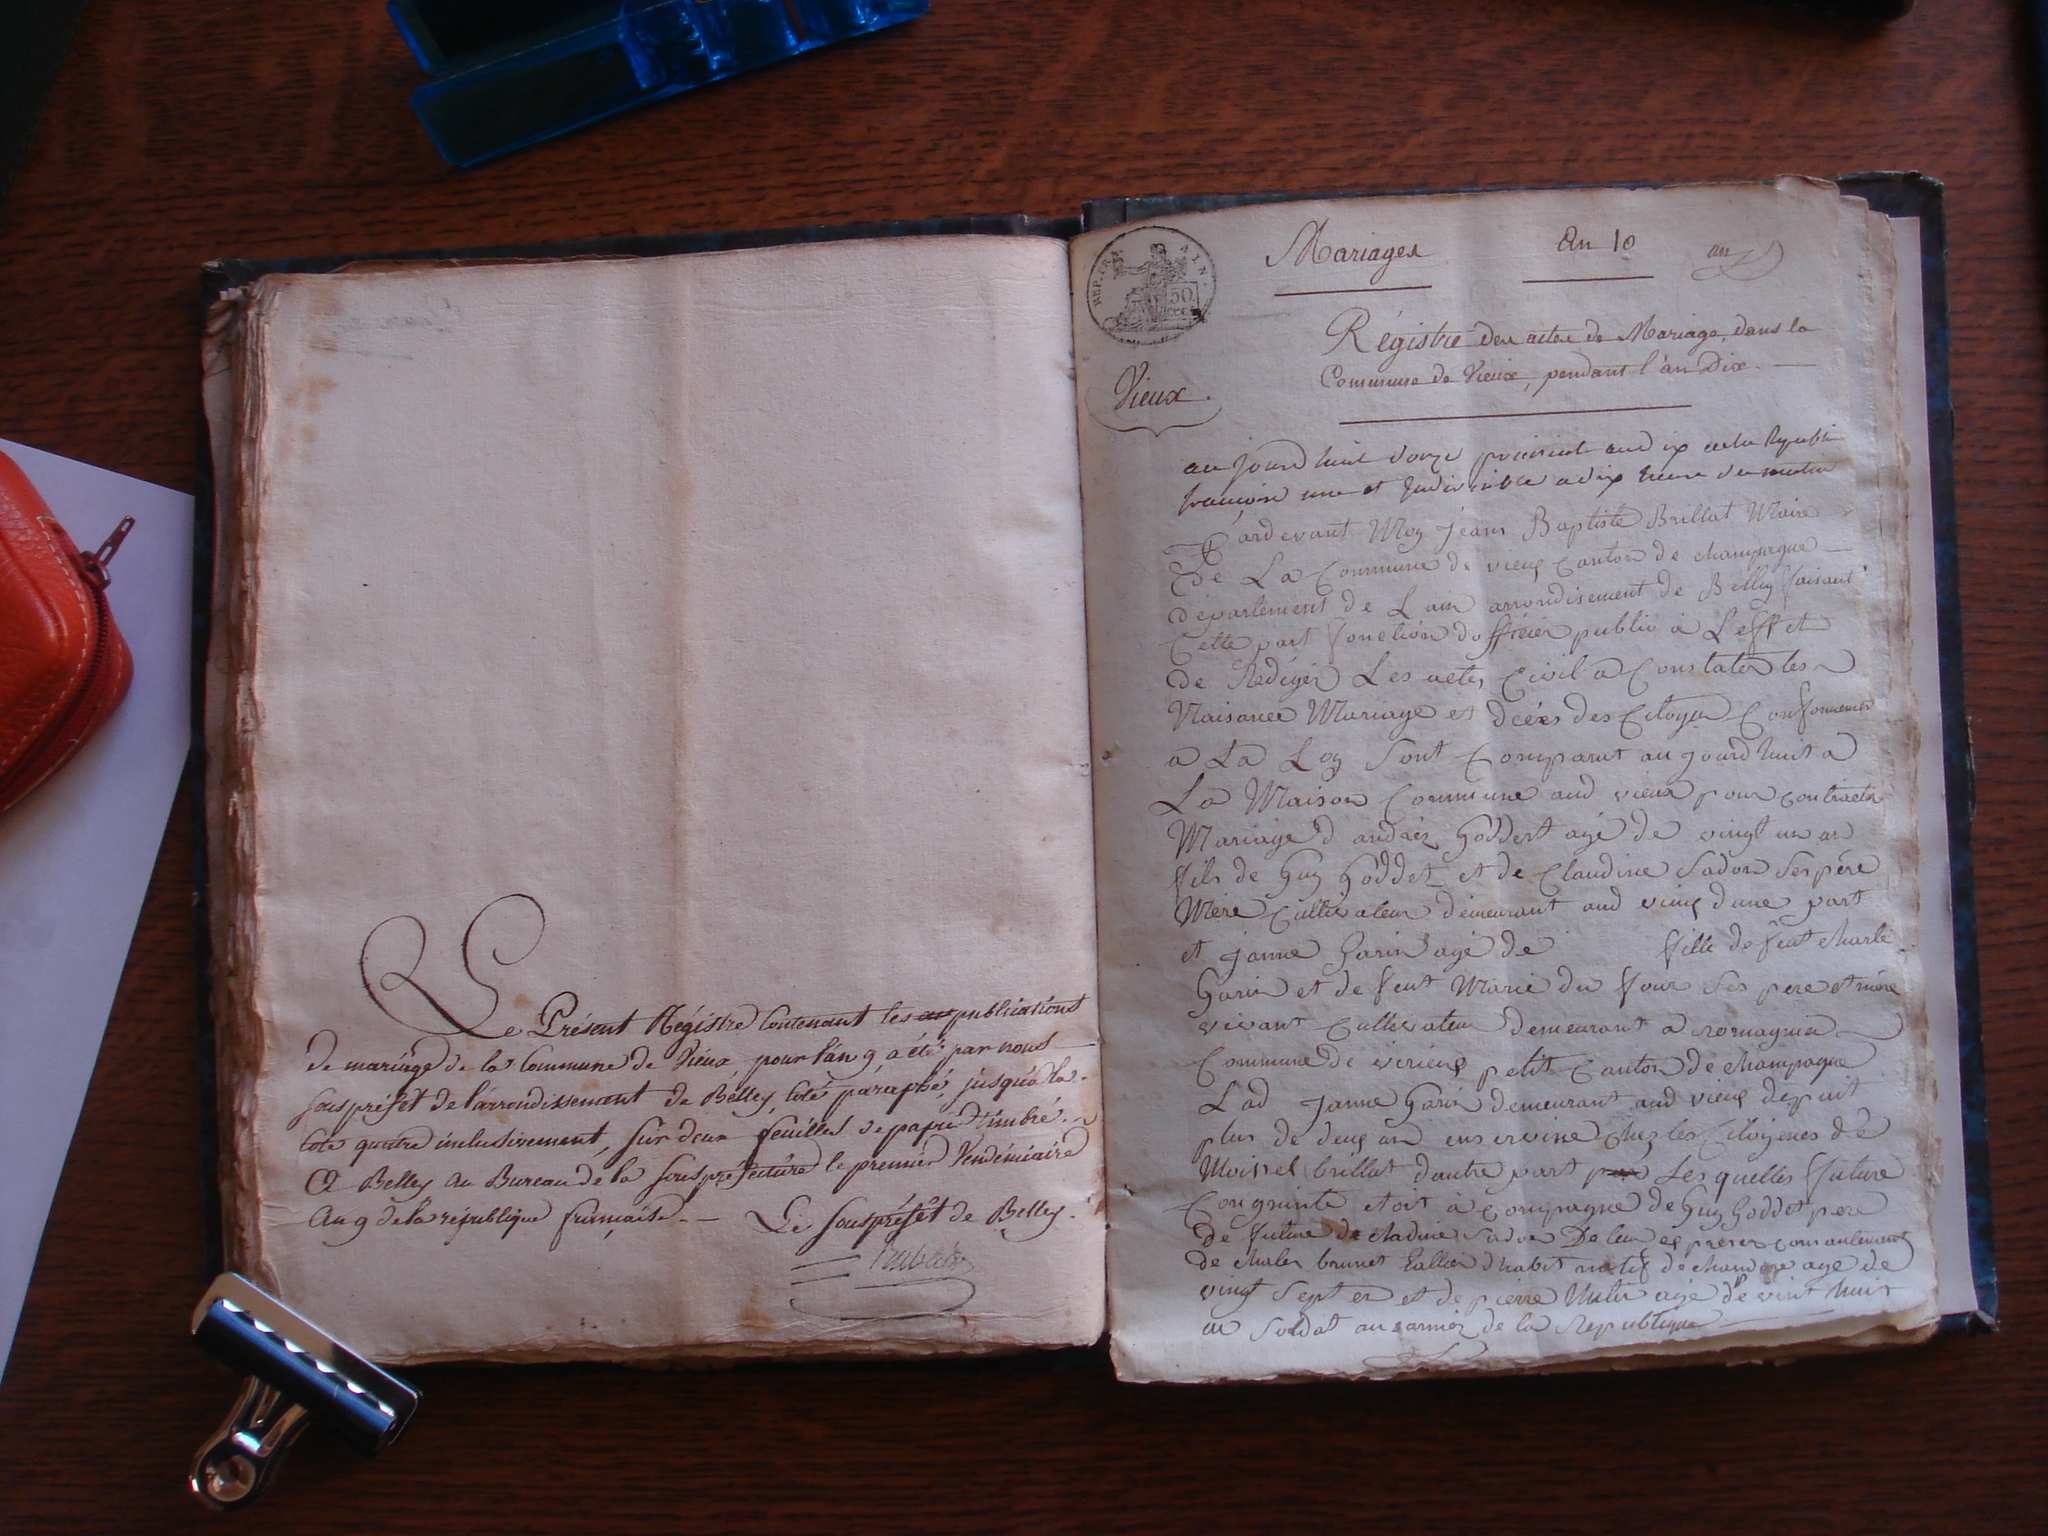 Le Présent Régistre Contenant les publications
de mariage de la Commune de Vieux pour l'an 9 a été par nous
souspréfet de l'arrondissement de Belley, coté paraphé, jusqu'à la
cote quatre inclusivement, sur deux feuilles de papier timbré.
A Belley au Bureau de la souspréfecture le premier Vendémiaire
an 9 de la république française. Le souspréfet de Belley.
Mariages An 10
REP. FRA AIN.
50
CEN
Vieux.
Régistre des actes de Mariage, dans la
Commune de Vieux, pendant l'an Dix.
au jourd huit donze prairial and ix de la Republi
francoise une et Indivisible a dix heure du matin
Pardevant Moy Jean Baptiste Brillat Maire
De La Commune de vieux Canton de champagne
département de Lain arrondisement de Belley faisant
Cette part fonction dofficier public à Leffet
de Rediger Les actes Civil a Constater les
Naisance Mariage et décés des Citoyen Conformement
a La Loy Sont Comparut au jourd huit a
La Maison Commune aud vieux pour contracter
Mariage d andrez Goddest agé de vingt un an
fils de Guy Goddet et de Claudine Sadon Ses pére
Mére Cultivateur demeurant aud vieux dune part
et Janne Garin agé de fille de feut Charle
Garin et de feut Marie du four Ses pere et mére
vivant Cultivateur demeurant a romagnieu
Commune de verieux petit Canton de Champagne
Lad Janne Garin demeurant aud vieux depuit
plus de deux an en service Chez les Citoyenes de
Moirel brillat dautre part Les quelles future
Conguinte etoit à Compagne de Guy Goddet pere
de future de Cladine Sadon De leur expres consantement
de Chales brunet tallieur dhabit natif de chandore age de
vingt Sept an et de pierre agé de vint huit
an Soldat au armée de la Republique